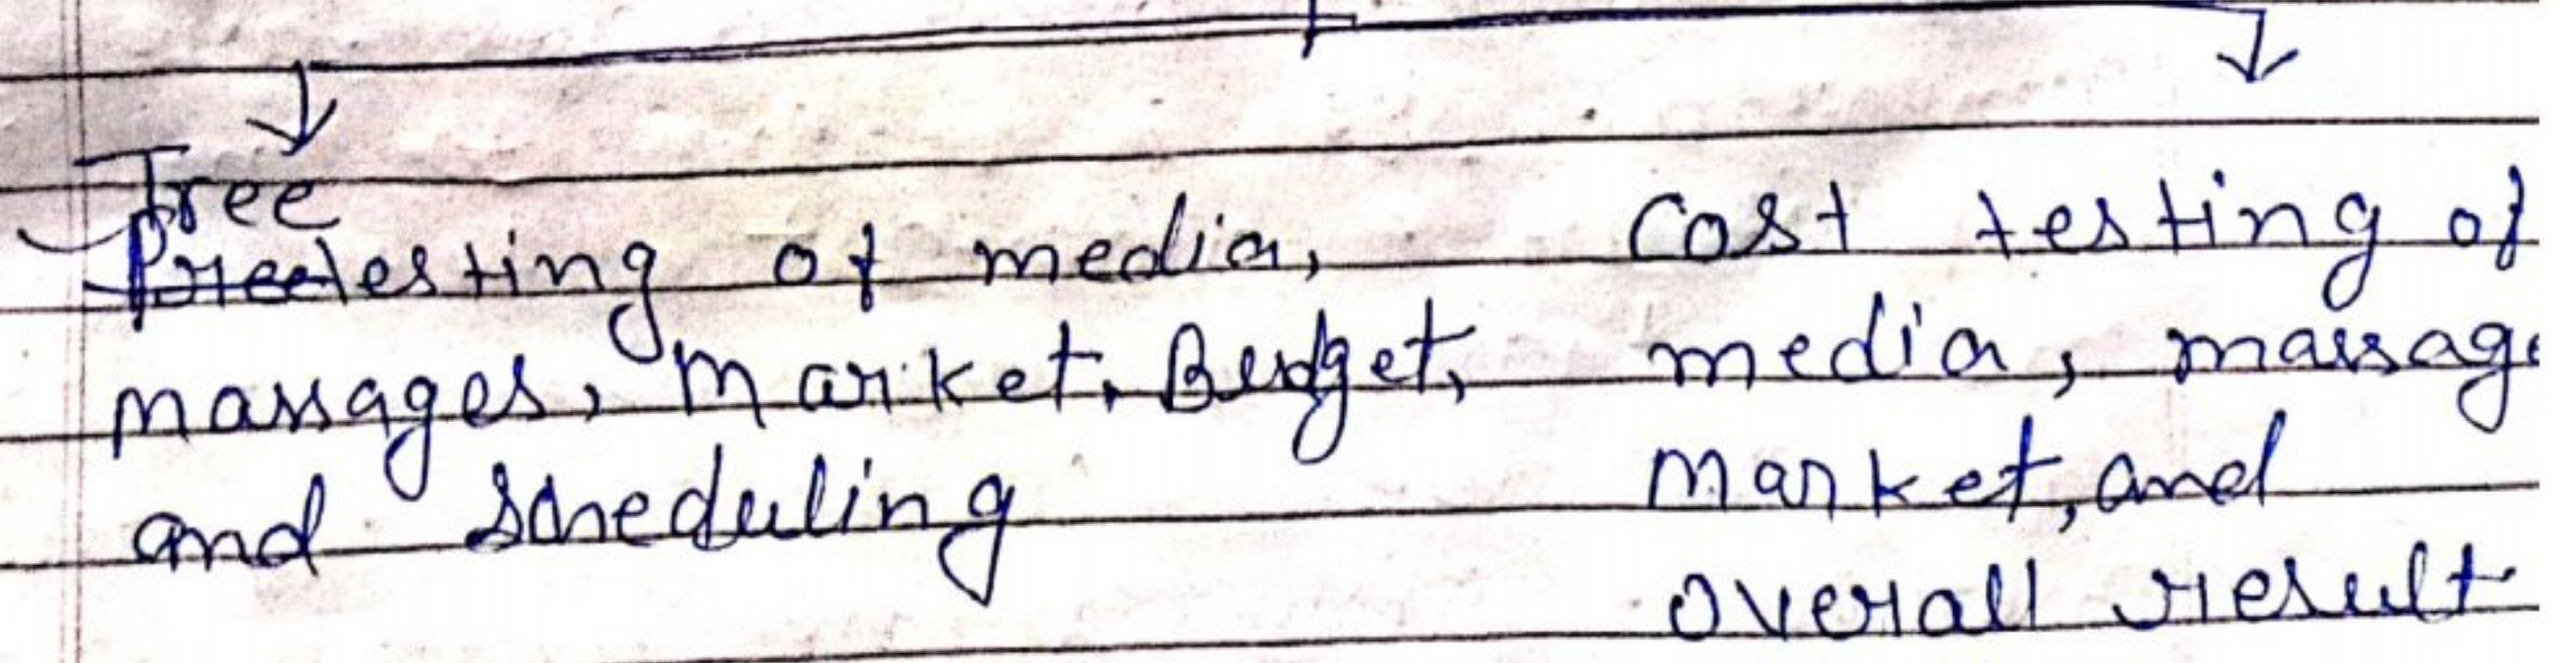 Tree
Preetesting of media,
massages, Market, Budget,
and scheduling
Cost testing of
media, massage
Market, and
overall result